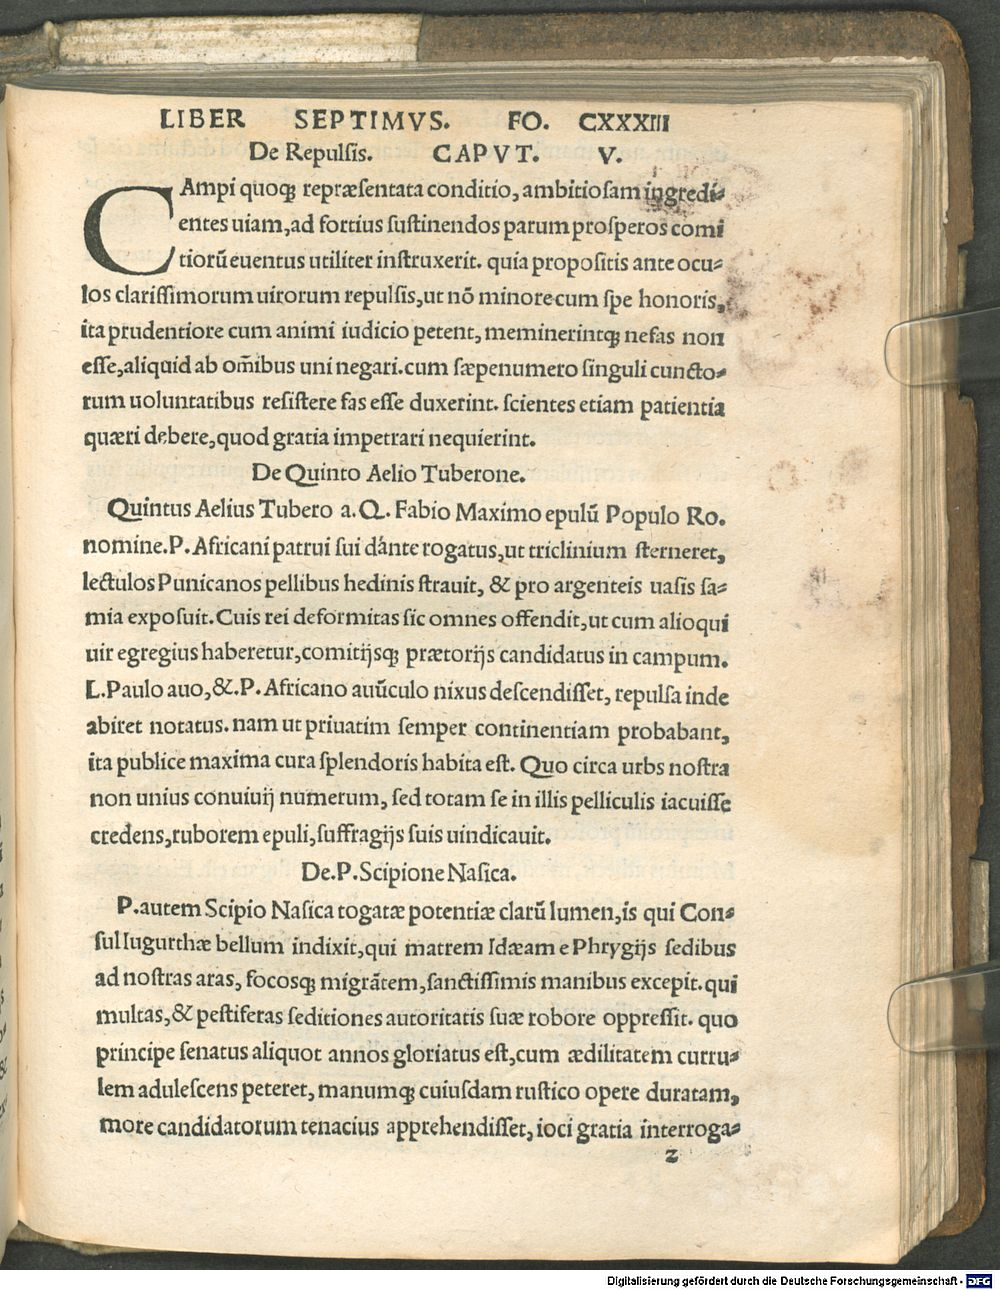 LIBER SEPTIMVS. FO. CXXXIII
De Repulsis. CAPVT. V.
CAmpi quoqꝫ repræsentata conditio, ambitiosam ingredi⸗
entes uiam, ad fortius sustinendos parum prosperos comi
tiorū euentus utiliter instruxerit. quia propositis ante ocu⸗
los clarissimorum uirorum repulsis, ut nō minore cum spe honoris,
ita prudentiore cum animi iudicio petent, meminerintqꝫ nefas non
esse, aliquid ab om̃ibus uni negari. cum sæpenumero singuli cuncto⸗
rum uoluntatibus resistere fas esse duxerint. scientes etiam patientia
quæri debere, quod gratia impetrari nequierint.
De Quinto Aelio Tuberone.
Quintus Aelius Tubero a. Q. Fabio Maximo epulū Populo Ro.
nomine. P. Africani patrui sui dánte rogatus, ut triclinium sterneret,
lectulos Punicanos pellibus hedinis strauit, & pro argenteis uasis sa⸗
mia exposuit. Cuis rei deformitas sic omnes offendit, ut cum alioqui
uir egregius haberetur, comitijsqꝫ prætorijs candidatus in campum.
L. Paulo auo, &. P. Africano auūculo nixus descendisset, repulsa inde
abiret notatus. nam ut priuatim semper continentiam probabant,
ita publice maxima cura splendoris habita est. Quo circa urbs nostra
non unius conuiuij numerum, sed totam se in illis pelliculis iacuisse
credens, ruborem epuli, suffragijs suis uindicauit.
De. P. Scipione Nasica.
P. autem Scipio Nasica togatæ potentiæ clarū lumen, is qui Con⸗
sul Iugurthæ bellum indixit, qui matrem Idæam e Phrygijs sedibus
ad nostras aras, focosqꝫ migrātem, sanctissimis manibus excepit. qui
multas, & pestiferas seditiones autoritatis suæ robore oppressit. quo
principe senatus aliquot annos gloriatus est, cum ædilitatem curru⸗
lem adulescens peteret, manumqꝫ cuiusdam rustico opere duratam,
more candidatorum tenacius apprehendisset, ioci gratia interroga⸗
z
Digitalisierung gefördert durch die Deutsche Forschungsgemeinschaft - DFG